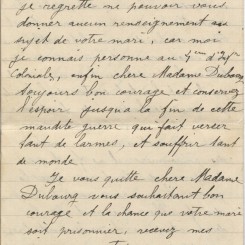 je regrette ne pouvoir vous
donner aucun renseignement au
sujet de votre mari, car moi
je connais personne au 4eme d'Inf
Coloniale, enfin chere Madame Dubourg
toujours bon courage et conservez
l'espoir jusqu'a la fin de cette
maudite guerre qui fait verser
tant de larmes, et souffrir tant
de monde
Je vous quitte chere Madame
Dubourg vous souhaitant bon
courage et la chance que votre mari
soit prisonnier, recevez mes